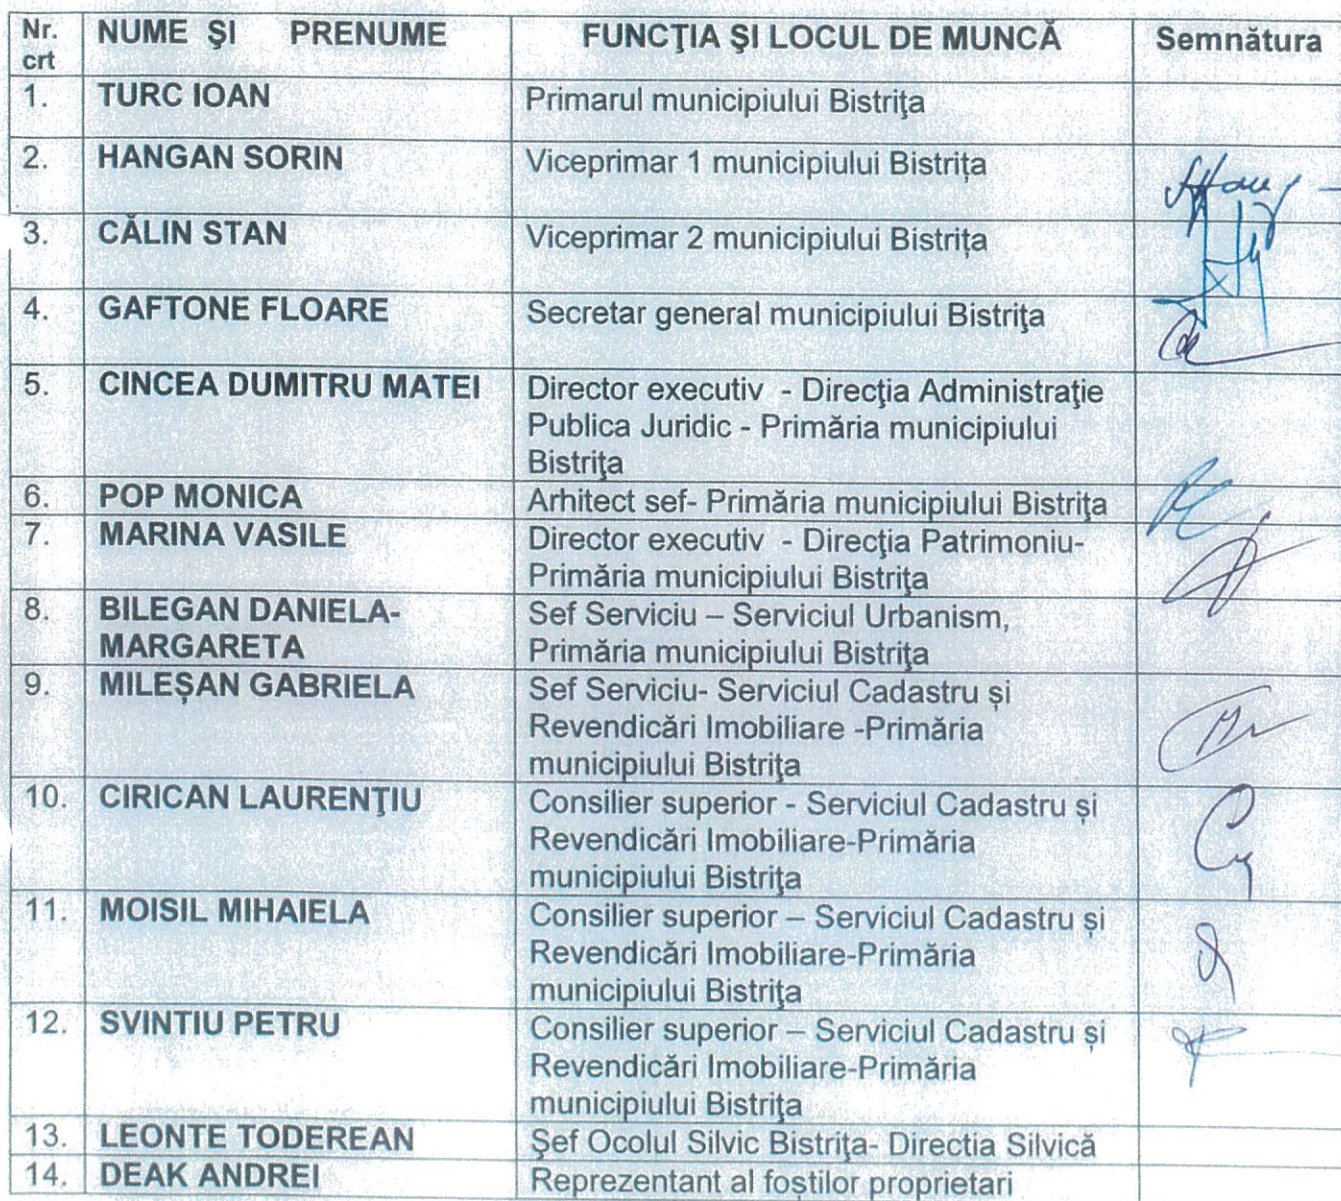 Nr. crt NUME ŞI PRENUME FUNCŢIA ŞI LOCUL DE MUNCĂ Semnătura
1. TURC IOAN Primarul municipiului Bistriţa
2. HANGAN SORIN Viceprimar 1 municipiului Bistrița
3. CĂLIN STAN Viceprimar 2 municipiului Bistrița
4. GAFTONE FLOARE Secretar general municipiului Bistriţa
5. CINCEA DUMITRU MATEI Director executiv - Direcţia Administraţie
Publica Juridic - Primăria municipiului
Bistriţa
6. POP MONICA Arhitect sef- Primăria municipiului Bistriţa
7. MARINA VASILE Director executiv - Direcţia Patrimoniu-
Primăria municipiului Bistriţa
8. BILEGAN DANIELA- Sef Serviciu – Serviciul Urbanism,
MARGARETA Primăria municipiului Bistriţa
9. MILEȘAN GABRIELA Sef Serviciu- Serviciul Cadastru și
Revendicări Imobiliare -Primăria
municipiului Bistriţa
10. CIRICAN LAURENŢIU Consilier superior - Serviciul Cadastru și
Revendicări Imobiliare-Primăria
municipiului Bistriţa
11. MOISIL MIHAIELA Consilier superior – Serviciul Cadastru și
Revendicări Imobiliare-Primăria
municipiului Bistriţa
12. SVINTIU PETRU Consilier superior – Serviciul Cadastru și
Revendicări Imobiliare-Primăria
municipiului Bistriţa
13. LEONTE TODEREAN Şef Ocolul Silvic Bistriţa- Directia Silvică
14. DEAK ANDREI Reprezentant al foștilor proprietari